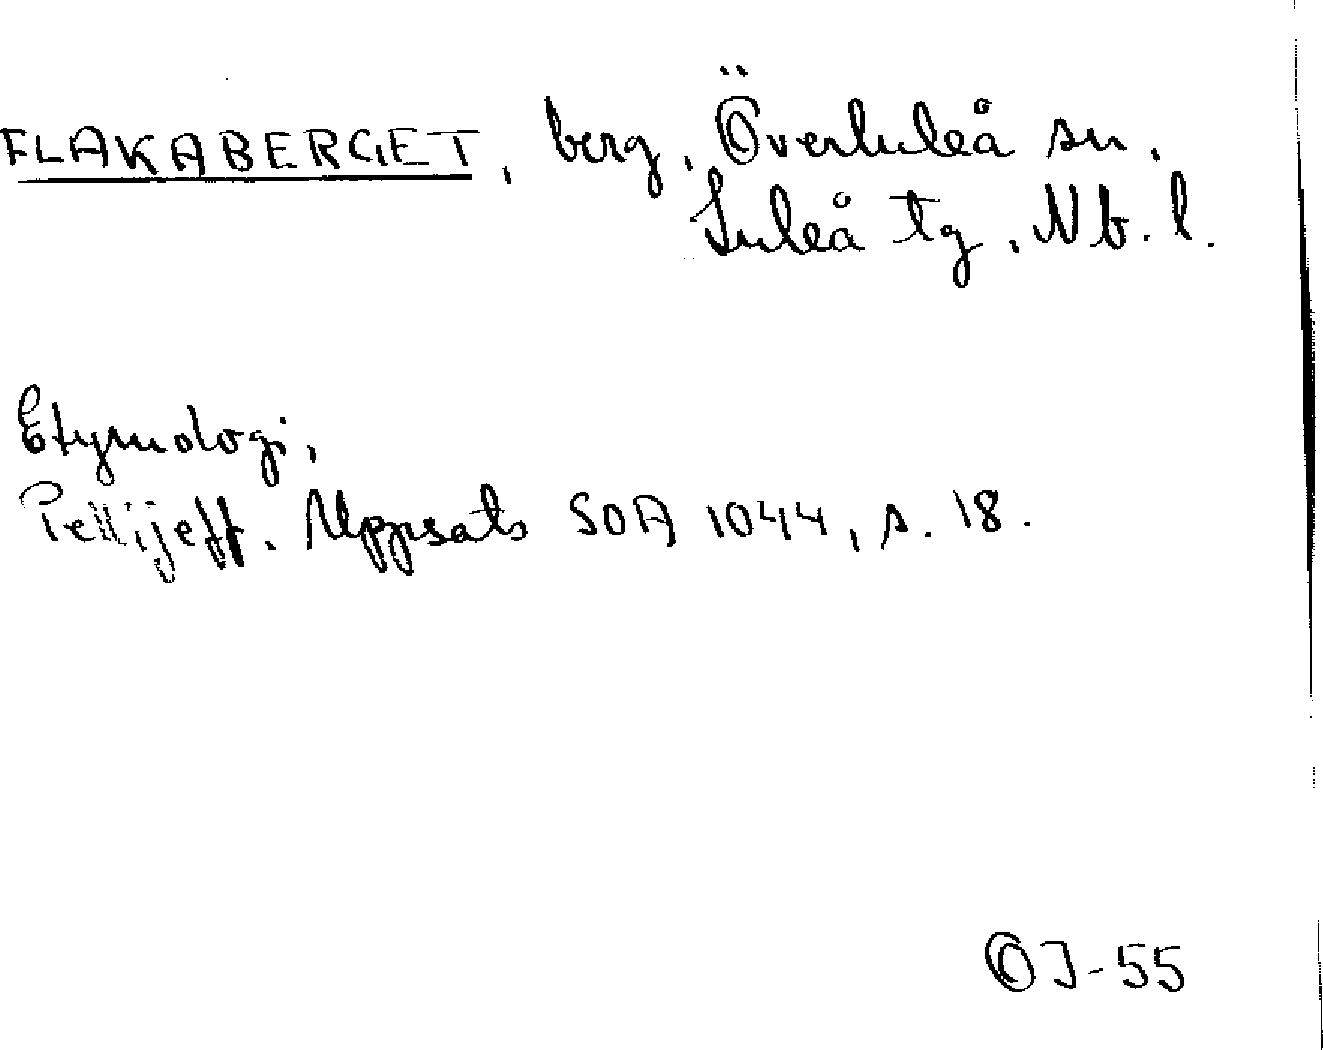 FLAKABERGET, berg, Överluleå sn,
Luleå tg, Nb. l.
Etymologi,
Pellijeff. Uppsats SOA 1044, s. 18.
OJ-55